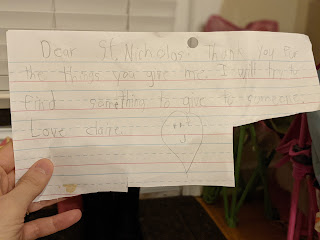 Dear St. Nicholas. Thank you for
the things you give me. I will try to
find something to give to someone.
Love claire.